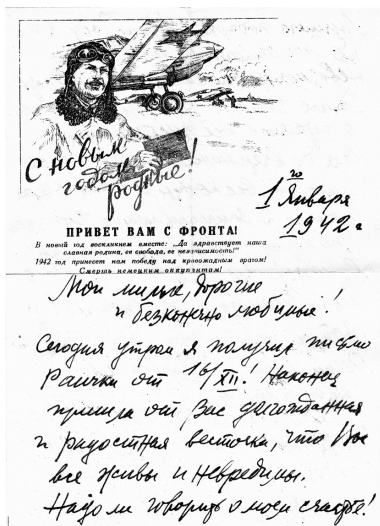 С новым
годом
родные!
1го Января
1942 г
ПРИВЕТ ВАМ С ФРОНТА!
В новый год воскликнем вместе: „Да здравствует наша
славная родина, ее свобода, ее независимость!"
1942 год принесет нам победу над кровожадным врагом!
Смерть немецким оккупантам!
Мои милые, дорогие
и бесконечно любимые!
Сегодня утром я получил письмо
Раички от 16/XII! Наконец
пришла от Вас долгожданная
и радостная весточка, что Вы
все живы и невредимы.
Надо ли говорить о моем счастье!